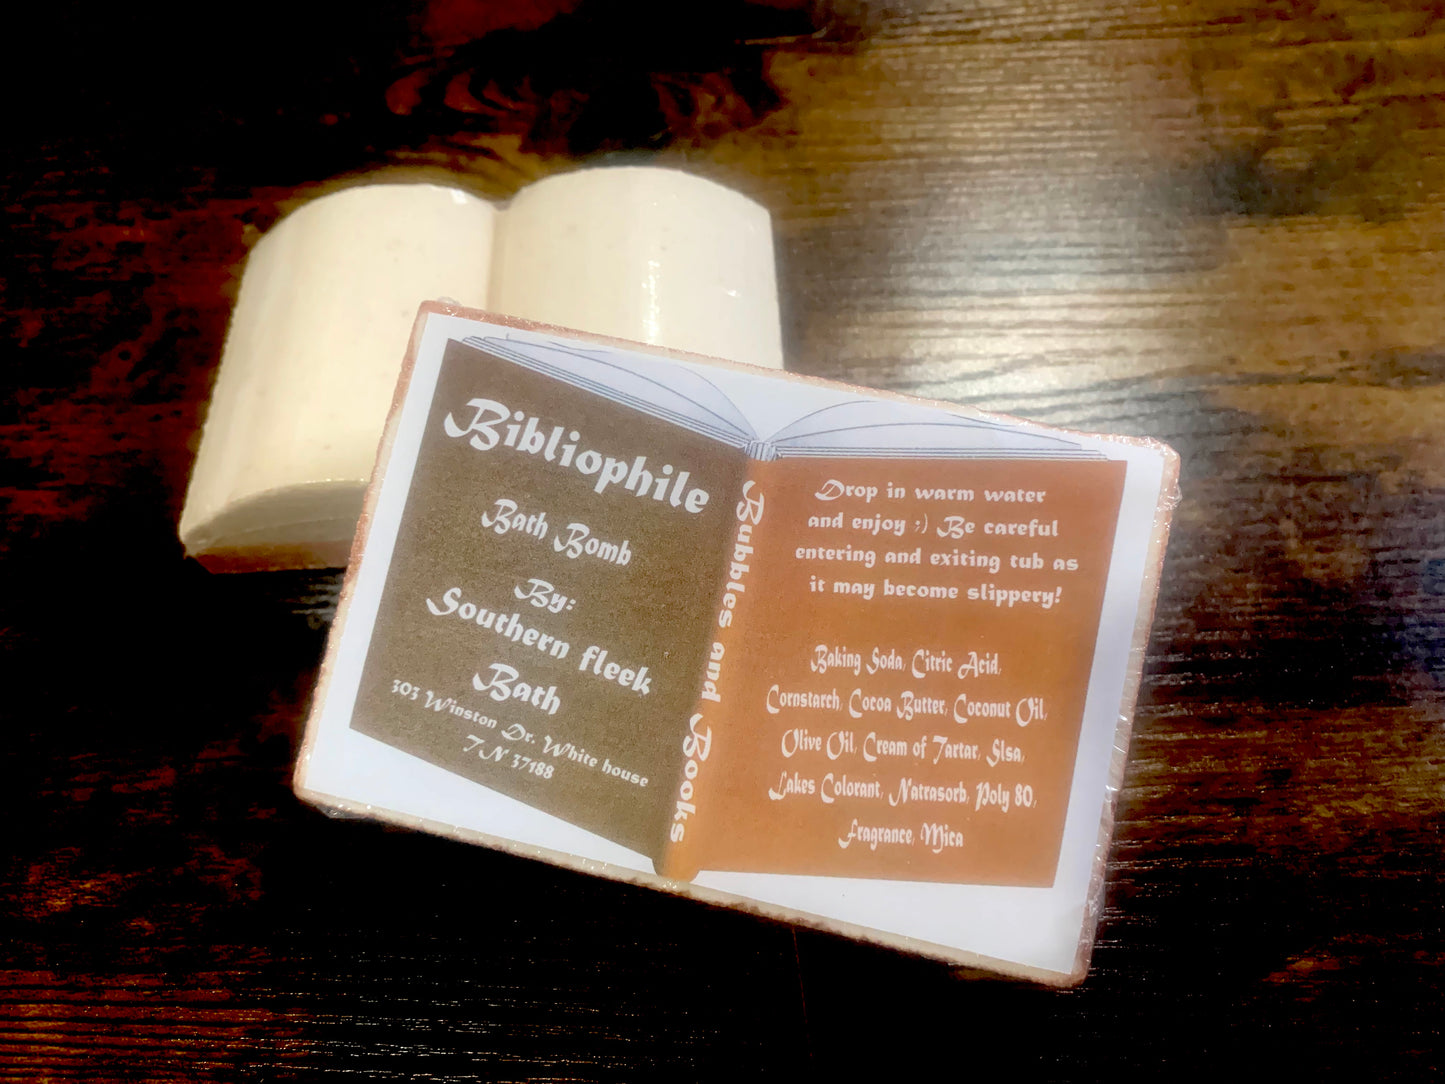 Bibliophile
Bath Bomb
By:
Southern fleek
Bath
303 Winston Dr. White house
TN 37188
Bubbles and Books
Drop in warm water
and enjoy ;) Be careful
entering and exiting tub as
it may become slippery!
Baking Soda, Citric Acid,
Cornstarch, Cocoa Butter, Coconut Oil,
Olive Oil, Cream of Tartar, Slsa,
Lakes Colorant, Natrasorb, Poly 80,
Fragrance, Mica